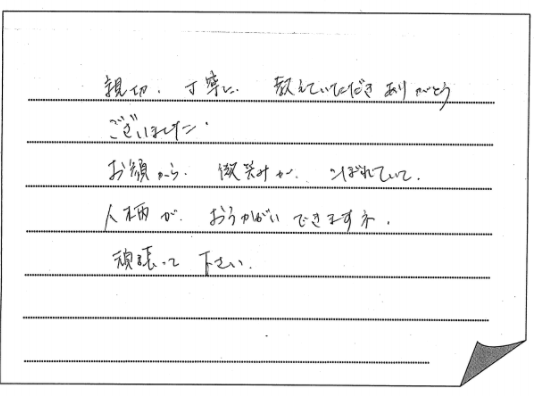 親切、丁寧に、教えていただきありがとう
ございました。
お顔から、微笑みが、こぼれていて、
人柄が、おうかがいできますネ、
頑張って下さい、